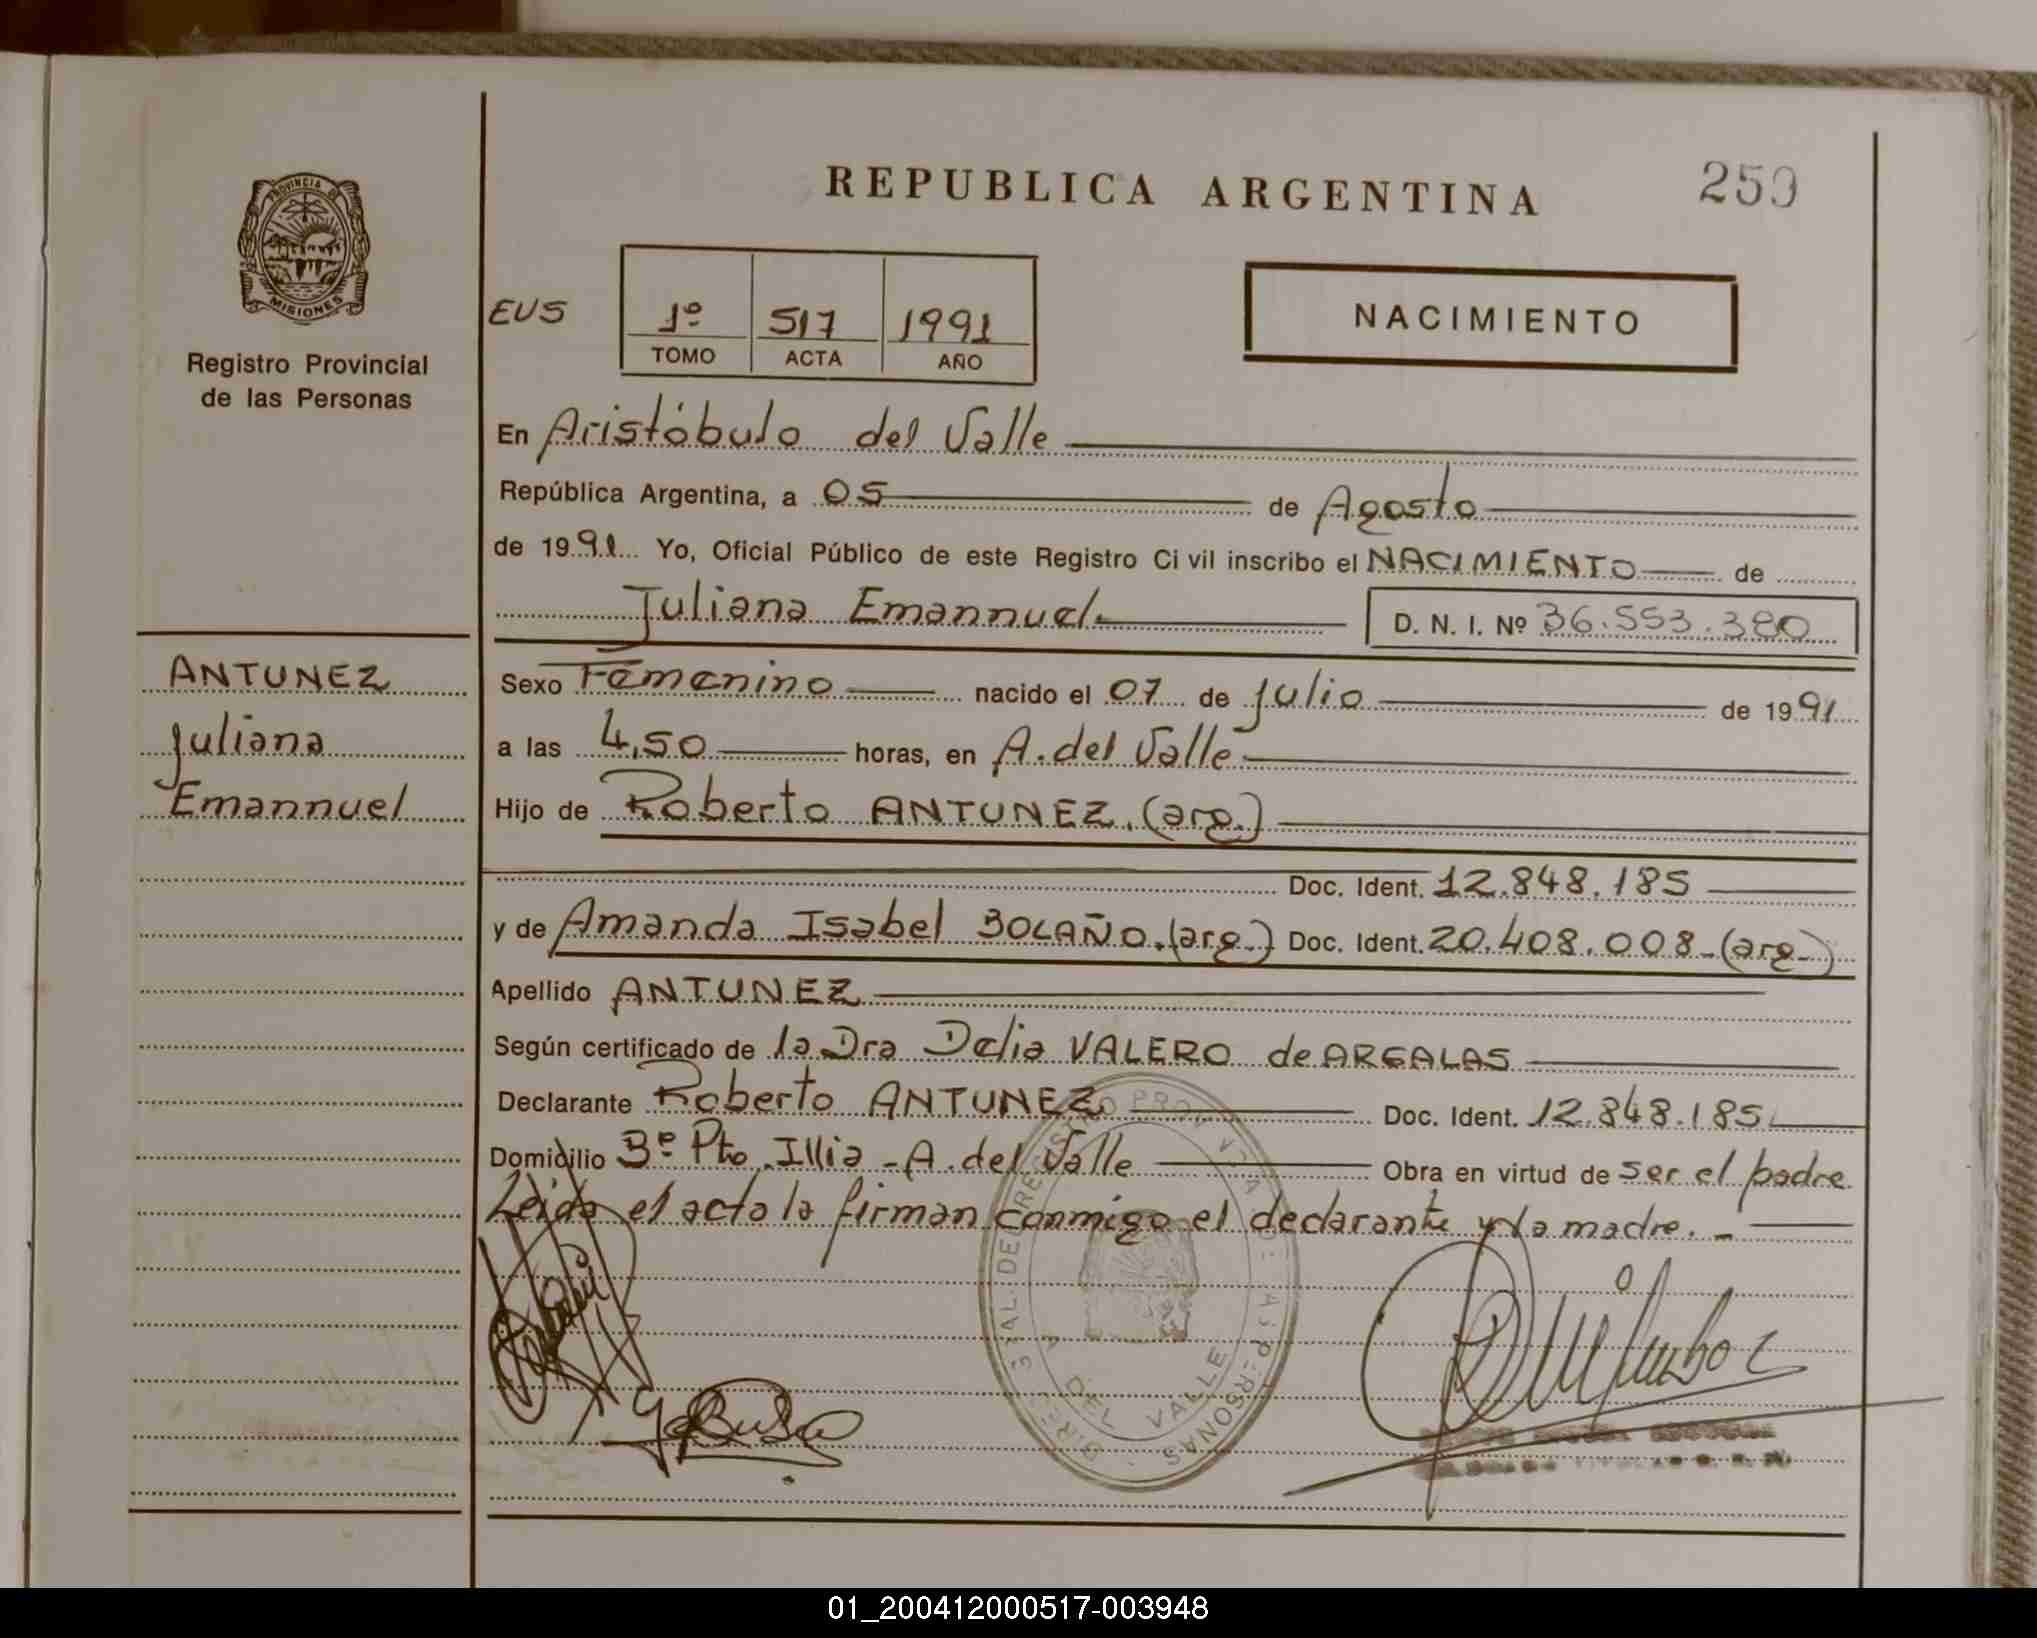 PROVINCIA DE
MISIONES
Registro Provincial
de las Personas
REPUBLICA ARGENTINA
259
EUS
1º 517 1991
TOMO ACTA AÑO
NACIMIENTO
En Aristóbulo del Valle
República Argentina, a 05 de Agosto
de 1991 Yo, Oficial Público de este Registro Ci vil inscribo el NACIMIENTO de
Juliana Emannuel D. N. I. Nº 36.553.380
ANTUNEZ
Juliana
Emannuel
Sexo Femenino nacido el 07 de Julio de 1991
a las 4,50 horas, en A. del Valle
Hijo de Roberto ANTUNEZ. (arg.)
Doc. Ident. 12.848.185
y de Amanda Isabel BOLAÑO. (arg.) Doc. Ident. 20.408.008-(arg-)
Apellido ANTUNEZ
Según certificado de la Dra Delia VALERO de ARGALAS
Declarante Roberto ANTUNEZ Doc. Ident. 12.848.185
Domicilio Bº Pto. Illia - A. del Valle Obra en virtud de ser el padre
Leida el acta la firman conmigo el declarante y la madre. -
DEL VALLE
01_200412000517-003948